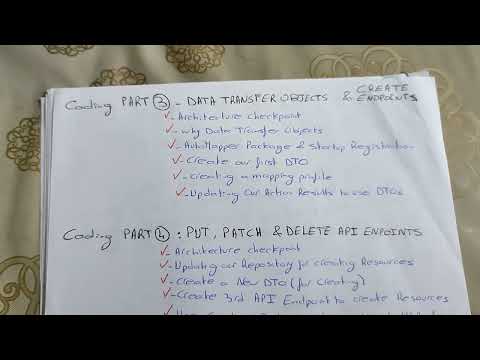 Coding PART 3 - DATA TRANSFER OBJECTS & CREATE ENDPOINTS
✓ - Architecture checkpoint
✓ - Why Data Transfer Objects
✓ - AutoMapper Package & Startup Registration
✓ - Create our first DTO
✓ - Creating a mapping profile
✓ - Updating Our Action Results to use DTOs
Coding PART 4 : PUT, PATCH & DELETE API ENPOINTS
✓ - Architecture checkpoint
✓ - Updating our Repository for creating Resources
✓ - Create a New DTO (for Creating)
✓ - Create 3rd API Endpoint to create Resources